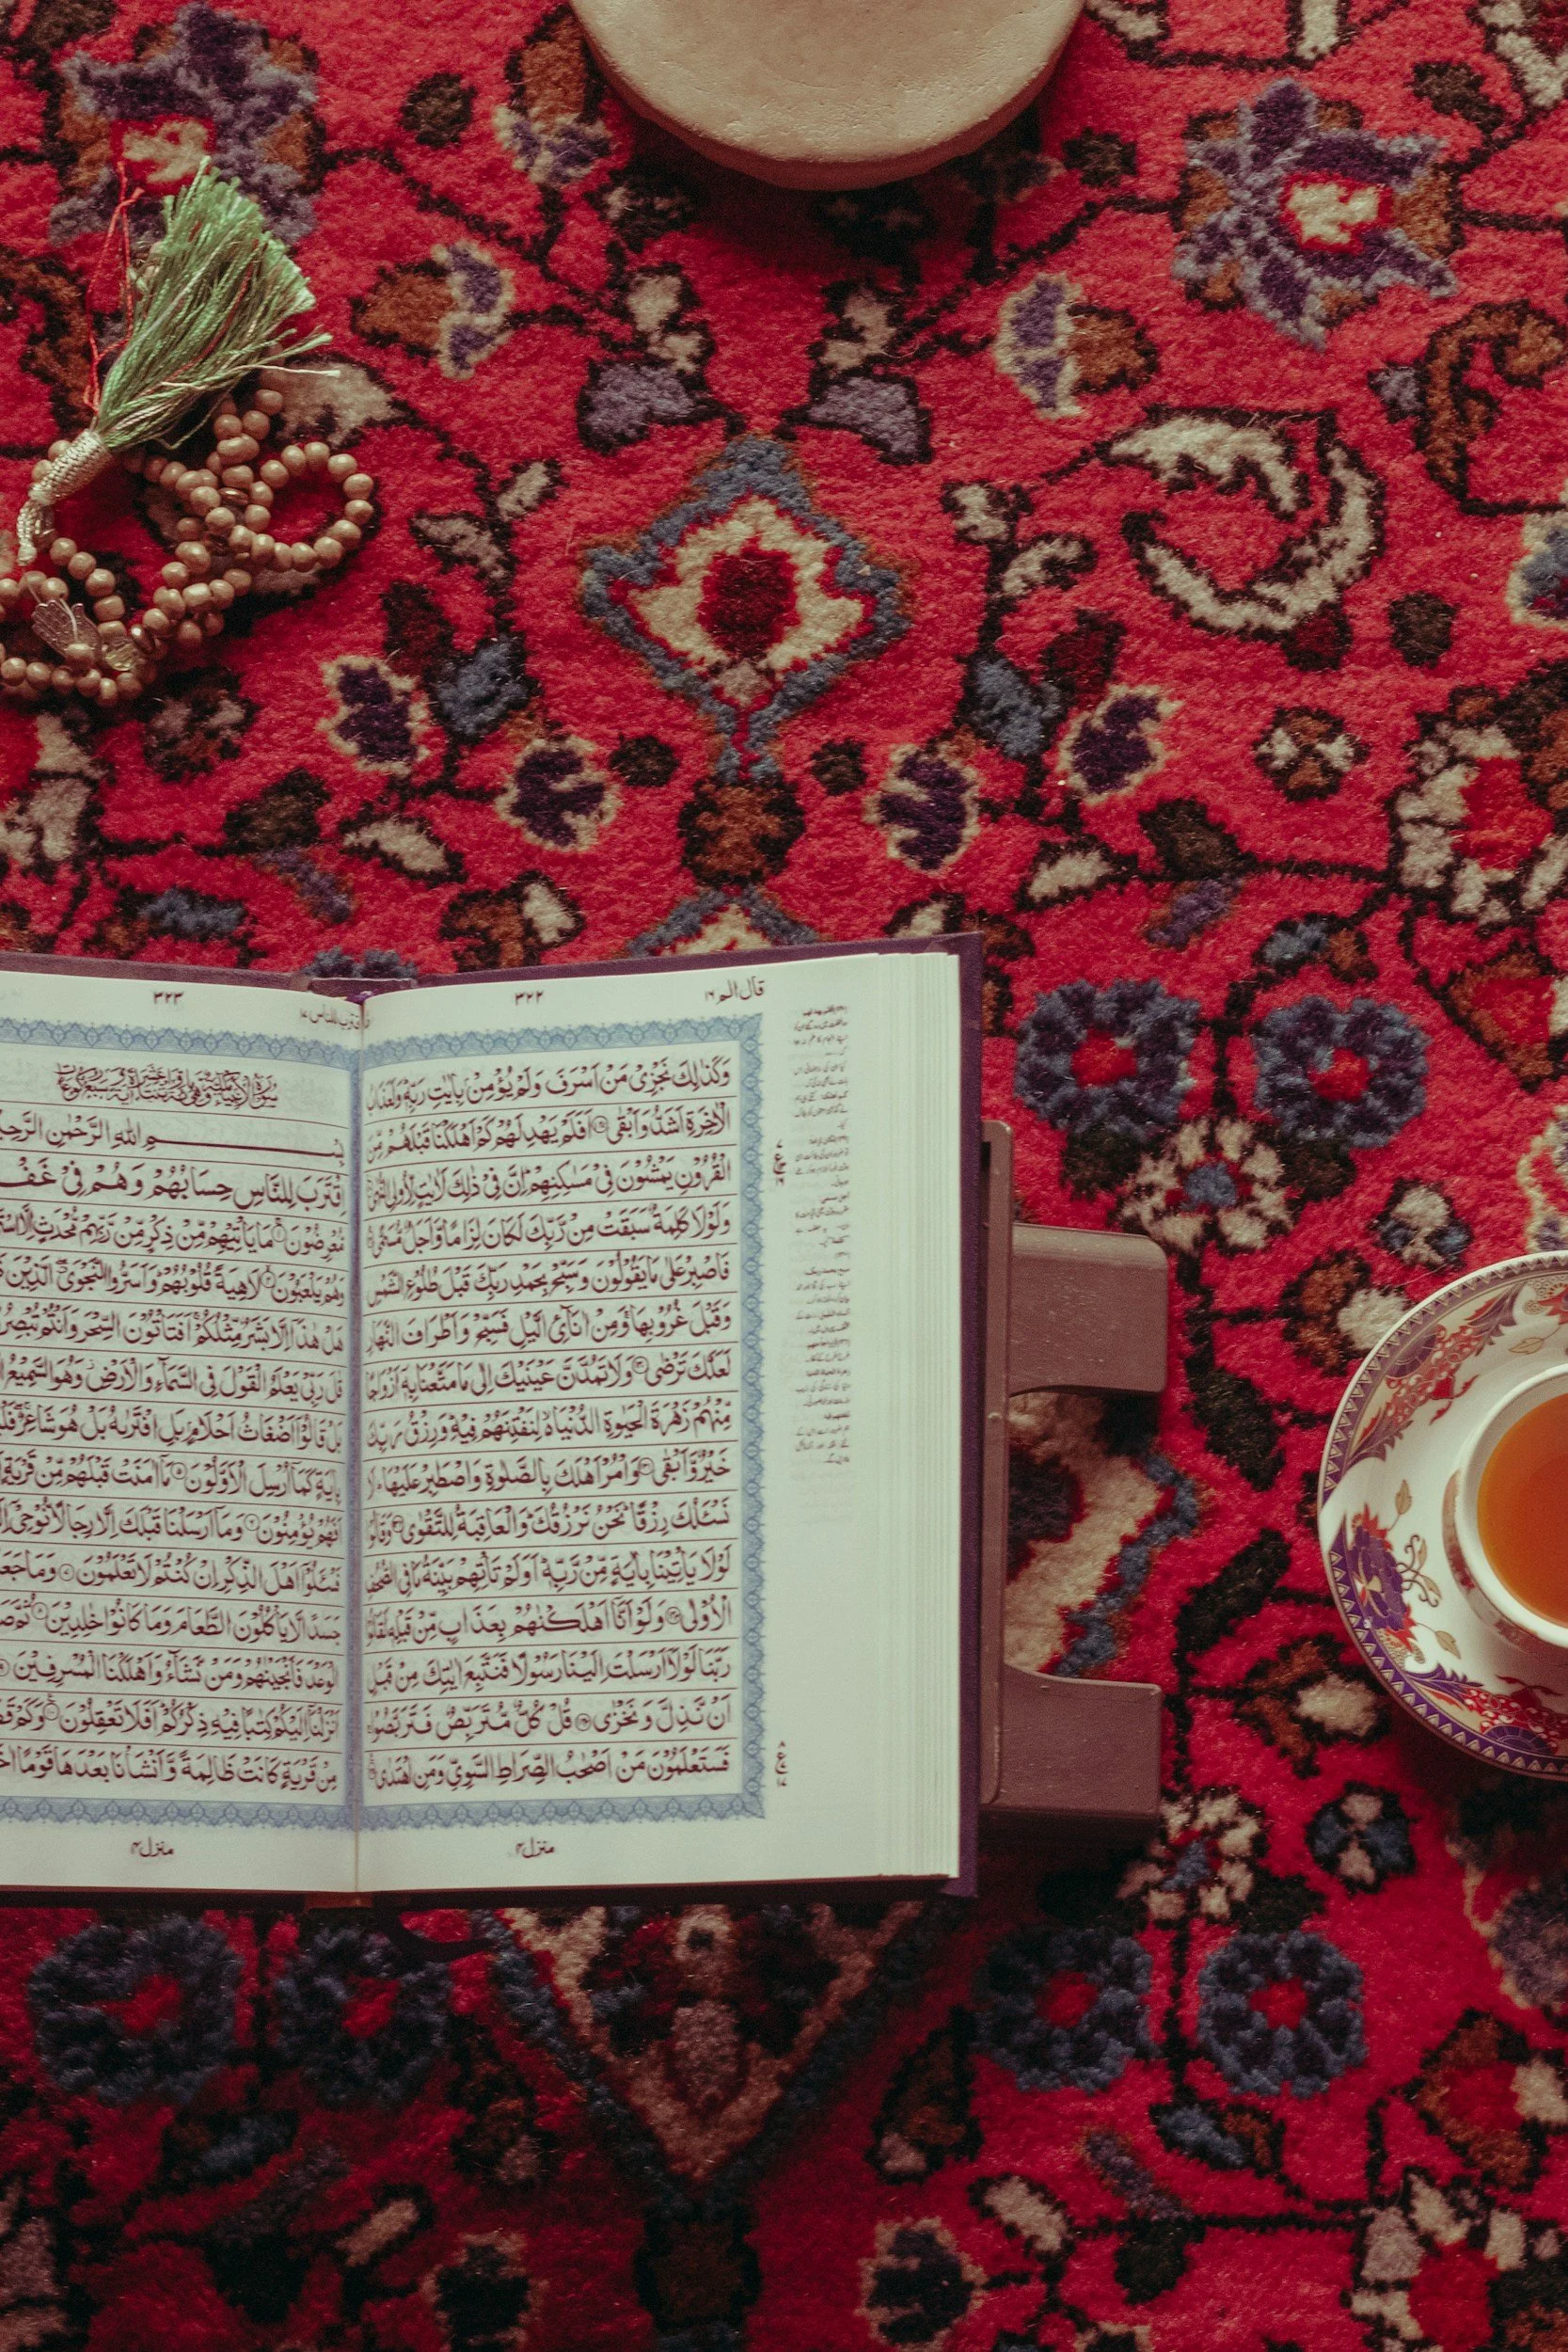 قال الم ١٦
٣٢٢
وَكَذٰلِكَ نَجْزِىْ مَنْ اَسْرَفَ وَلَمْ يُؤْمِنْۢ بِاٰيٰتِ رَبِّهٖ وَلَعَذَابُ
الْاٰخِرَةِ اَشَدُّ وَاَبْقٰى اَفَلَمْ يَهْدِ لَهُمْ كَمْ اَهْلَكْنَا قَبْلَهُمْ مِّنَ
الْقُرُوْنِ يَمْشُوْنَ فِىْ مَسٰكِنِهِمْ اِنَّ فِىْ ذٰلِكَ لَاٰيٰتٍ لِّاُولِى النُّهٰى
وَلَوْلَا كَلِمَةٌ سَبَقَتْ مِنْ رَّبِّكَ لَكَانَ لِزَامًا وَّاَجَلٌ مُّسَمًّى
فَاصْبِرْ عَلٰى مَا يَقُوْلُوْنَ وَسَبِّحْ بِحَمْدِ رَبِّكَ قَبْلَ طُلُوْعِ الشَّمْسِ
وَقَبْلَ غُرُوْبِهَا وَمِنْ اٰنَآئِ الَّيْلِ فَسَبِّحْ وَاَطْرَافَ النَّهَارِ
لَعَلَّكَ تَرْضٰى وَلَا تَمُدَّنَّ عَيْنَيْكَ اِلٰى مَا مَتَّعْنَا بِهٖٓ اَزْوَاجًا
مِّنْهُمْ زَهْرَةَ الْحَيٰوةِ الدُّنْيَا لِنَفْتِنَهُمْ فِيْهِ وَرِزْقُ رَبِّكَ
خَيْرٌ وَّاَبْقٰى وَاْمُرْ اَهْلَكَ بِالصَّلٰوةِ وَاصْطَبِرْ عَلَيْهَا لَا
نَسْئَلُكَ رِزْقًا نَحْنُ نَرْزُقُكَ وَالْعَاقِبَةُ لِلتَّقْوٰى وَقَالُوْا
لَوْلَا يَاْتِيْنَا بِاٰيَةٍ مِّنْ رَّبِّهٖ اَوَلَمْ تَاْتِهِمْ بَيِّنَةُ مَا فِى الصُّحُفِ
الْاُوْلٰى وَلَوْ اَنَّآ اَهْلَكْنٰهُمْ بِعَذَابٍ مِّنْ قَبْلِهٖ لَقَالُوْا
رَبَّنَا لَوْلَآ اَرْسَلْتَ اِلَيْنَا رَسُوْلًا فَنَتَّبِعَ اٰيٰتِكَ مِنْ قَبْلِ
اَنْ نَّذِلَّ وَنَخْزٰى قُلْ كُلٌّ مُّتَرَبِّصٌ فَتَرَبَّصُوْا
فَسَتَعْلَمُوْنَ مَنْ اَصْحٰبُ الصِّرَاطِ السَّوِىِّ وَمَنِ اهْتَدٰى
منزل ٤
اقترب للناس ١٧
٣٢٣
بِسْمِ اللهِ الرَّحْمٰنِ الرَّحِيْمِ
اِقْتَرَبَ لِلنَّاسِ حِسَابُهُمْ وَهُمْ فِىْ غَفْ
مُّعْرِضُوْنَ مَا يَاْتِيْهِمْ مِّنْ ذِكْرٍ مِّنْ رَّبِّهِمْ مُّحْدَثٍ اِلَّا اسْتَ
وَهُمْ يَلْعَبُوْنَ لَاهِيَةً قُلُوْبُهُمْ وَاَسَرُّوا النَّجْوَى الَّذِيْنَ
هَلْ هٰذَآ اِلَّا بَشَرٌ مِّثْلُكُمْ اَفَتَاْتُوْنَ السِّحْرَ وَاَنْتُمْ تُبْصِرُ
قٰلَ رَبِّىْ يَعْلَمُ الْقَوْلَ فِى السَّمَآءِ وَالْاَرْضِ وَهُوَ السَّمِيْعُ
بَلْ قَالُوْٓا اَضْغَاثُ اَحْلَامٍ بَلِ افْتَرٰىهُ بَلْ هُوَ شَاعِرٌ
بِاٰيَةٍ كَمَآ اُرْسِلَ الْاَوَّلُوْنَ مَآ اٰمَنَتْ قَبْلَهُمْ مِّنْ قَرْيَةٍ
اَفَهُمْ يُؤْمِنُوْنَ وَمَآ اَرْسَلْنَا قَبْلَكَ اِلَّا رِجَالًا نُّوْحِىْٓ
فَسْئَلُوْٓا اَهْلَ الذِّكْرِ اِنْ كُنْتُمْ لَا تَعْلَمُوْنَ وَمَا جَعَ
جَسَدًا لَّا يَاْكُلُوْنَ الطَّعَامَ وَمَا كَانُوْا خٰلِدِيْنَ ثُمَّ
الْوَعْدَ فَاَنْجَيْنٰهُمْ وَمَنْ نَّشَآءُ وَاَهْلَكْنَا الْمُسْرِفِيْنَ
اَنْزَلْنَآ اِلَيْكُمْ كِتٰبًا فِيْهِ ذِكْرُكُمْ اَفَلَا تَعْقِلُوْنَ وَكَمْ
مِنْ قَرْيَةٍ كَانَتْ ظَالِمَةً وَّاَنْشَاْنَا بَعْدَهَا قَوْمًا
منزل ٤